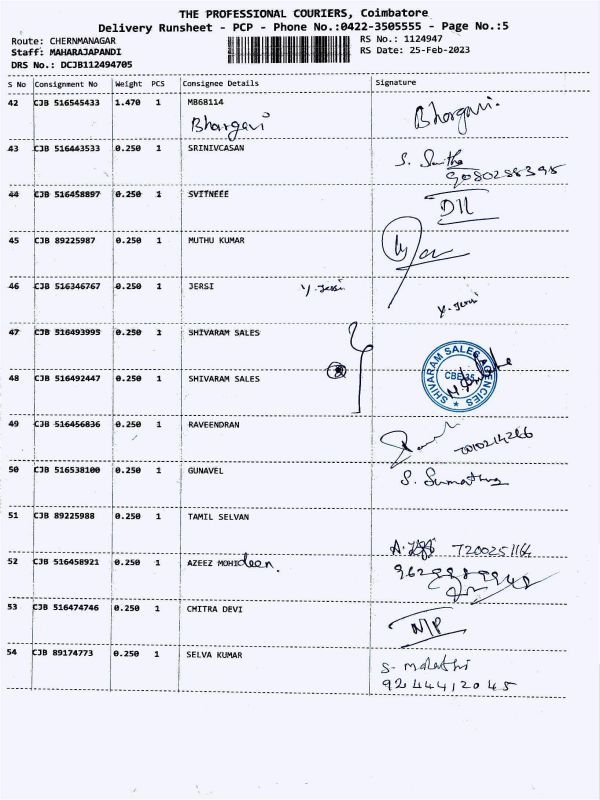 THE PROFESSIONAL COURIERS, Coimbatore
Delivery Runsheet - PCP - Phone No.:0422-3505555 - Page No.:5
Route: CHERNMANAGAR
Staff: MAHARAJAPANDI
DRS No.: DCJB112494705
RS No.: 1124947
RS Date: 25-Feb-2023
S No Consignment No Weight PCS Consignee Details Signature
42 CJB 516545433 1.470 1 MB68114
Bhargavi Bhargavi.
43 CJB 516443533 0.250 1 SRINIVCASAN
9080288395
44 CJB 516458897 0.250 1 SVITNEEE
45 CJB 89225987 0.250 1 MUTHU KUMAR
46 CJB 516346767 0.250 1 JERSI
47 CJB 516493995 0.250 1 SHIVARAM SALES
48 CJB 516492447 0.250 1 SHIVARAM SALES
SHIVARAM SALES AGENCIES
CBE-35
49 CJB 516456836 0.250 1 RAVEENDRAN
50 CJB 516538100 0.250 1 GUNAVEL
S. Sumathy
51 CJB 89225988 0.250 1 TAMIL SELVAN
7200251164
52 CJB 516458921 0.250 1 AZEEZ MOHIdeen.
53 CJB 516474746 0.250 1 CHITRA DEVI
N/P
54 CJB 89174773 0.250 1 SELVA KUMAR
S. Malathi
9244412045